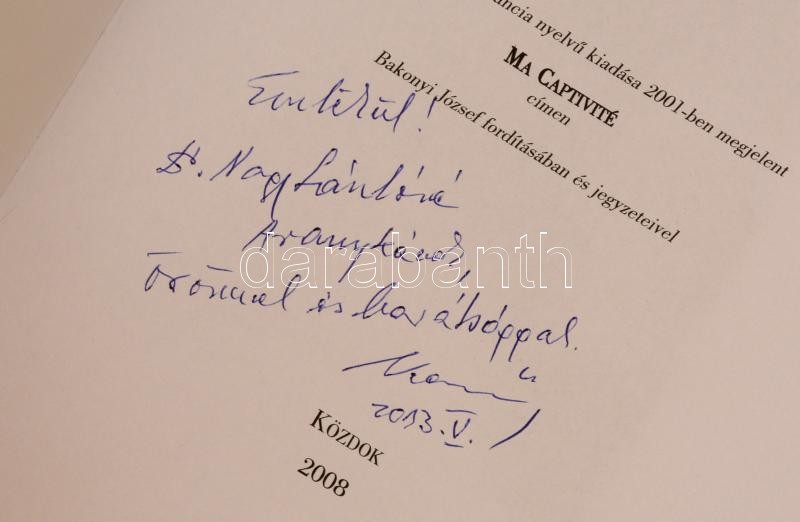 ancia nyelvű kiadása 2001-ben megjelent
MA CAPTIVITÉ
címen
Bakonyi József fordításában és jegyzeteivel
Emlékül!
Dr. Nagy
örömmel és barátsággal.
2013. V.
KÖZDOK
2008
darabanth